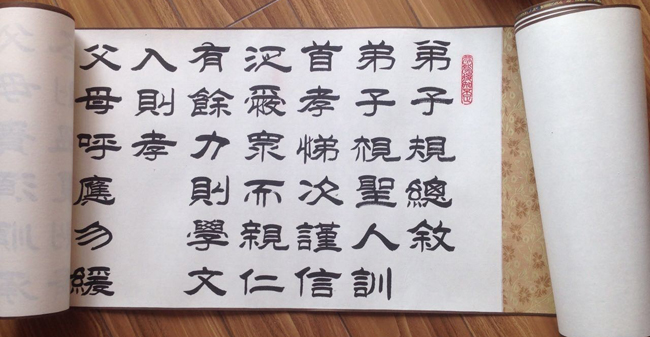 弟子規總敘
弟子規聖人訓
首孝悌次謹信
泛愛眾而親仁
有餘力則學文
入則孝
父母呼應勿緩